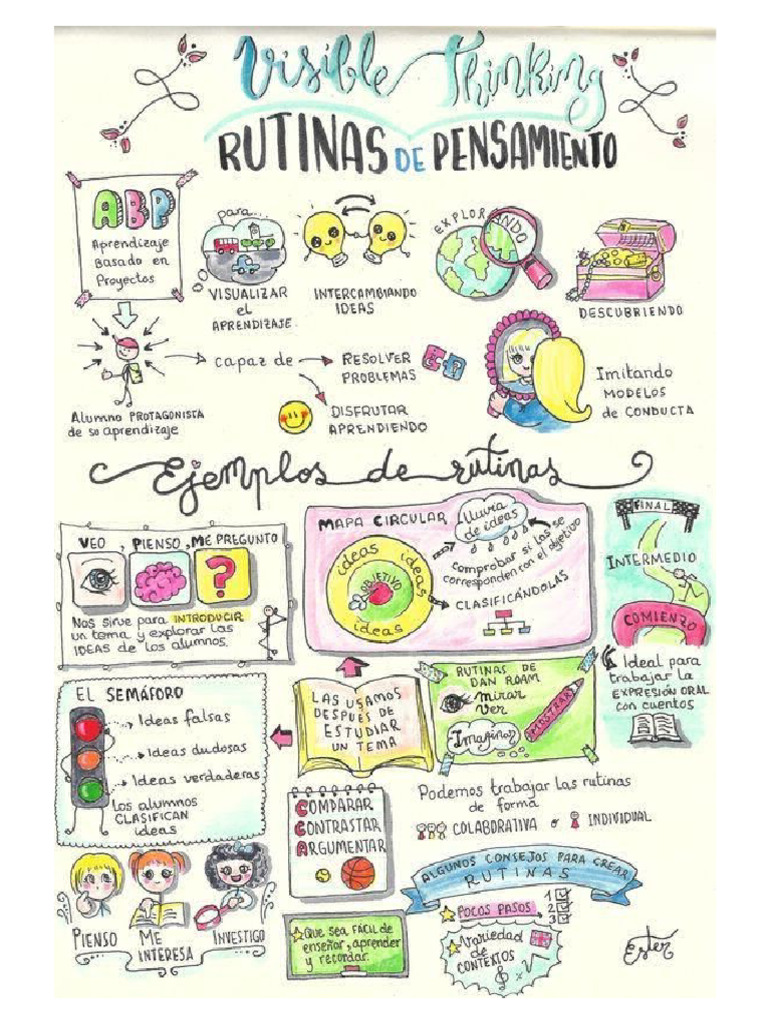 Visible Thinking
RUTINAS DE PENSAMIENTO
ABP
Aprendizaje
Basado en
Proyectos
para...
VISUALIZAR
el
APRENDIZAJE.
INTERCAMBIANDO
IDEAS
EXPLORANDO
DESCUBRIENDO
Alumno PROTAGONISTA
de su aprendizaje
capaz de
RESOLVER
PROBLEMAS
DISFRUTAR
APRENDIENDO
Imitando
MODELOS
de CONDUCTA
Ejemplos de rutinas
VEO, PIENSO, ME PREGUNTO
?
Nos sirve para INTRODUCIR
un tema y explorar las
IDEAS de los alumnos.
MAPA CIRCULAR
lluvia
de ideas
ideas
ideas
ideas
ideas
OBJETIVO
comprobar si las se
corresponden con el objetivo
CLASIFICÁNDOLAS
FINAL
INTERMEDIO
COMIENZO
Ideal para
trabajar la
EXPRESIÓN ORAL
con cuentos
EL SEMÁFORO
Ideas falsas
Ideas dudosas
Ideas verdaderas
Los alumnos
CLASIFICAN
ideas
LAS USAMOS
DESPUÉS DE
ESTUDIAR
UN TEMA
RUTINAS DE
DAN ROAM
mirar
ver
Imaginar
MOSTRAR
COMPARAR
CONTRASTAR
ARGUMENTAR
Podemos trabajar las rutinas
de forma
COLABORATIVA o INDIVIDUAL
PIENSO
ME
INTERESA
INVESTIGO
ALGUNOS CONSEJOS PARA CREAR
RUTINAS
POCOS PASOS
1
2
3
Que sea FÁCIL de
enseñar, aprender
y recordar.
Variedad
de
CONTEXTOS
Ester